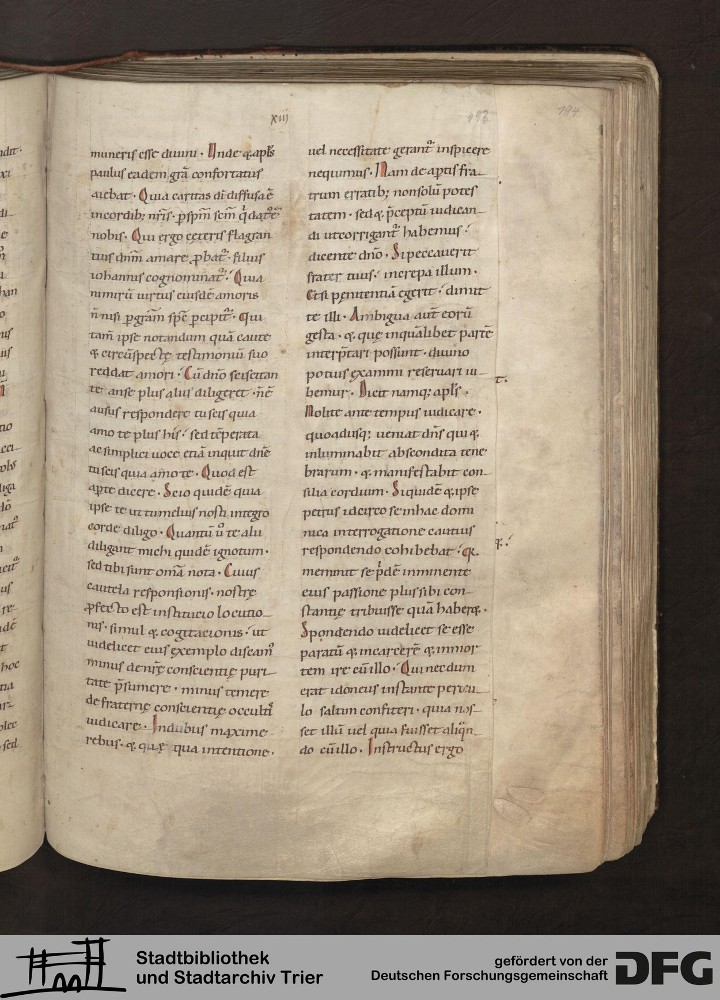 xiij
194
muneris esse diuini · Unde & apl̄s
paulus eadem grā confortatus
aiebat · Quia caritas dī diffusa ē
incordib; nr̄is · p sp̄m sc̄m q̇ datꝰ ē
nobis · Qui ergo ceteris flagran
tius dn̄m amare ꝓbat᷑ · filius
iohannis cognominat᷑ · Quia
nimirū uirtus eiusdē amoris
n̄ nisi ꝑ grām sp̄c ꝑcipit᷑ · Qui
tam̄ ipse notandum quā caute
& circūspecte testimoniū suo
reddat amori · Cū dn̄o sciscitan
te · an se plus aliis diligeret · n̄ ē
ausus respondere tu scis quia
amo te plus his · sed tēperata
ac simplici uoce etiā inquit dn̄e
tu scis quia amo te · Quod est
apte dicere · Scio quidē quia
ipse te ut tu melius nosti integro
corde diligo · Quantū ū te alii
diligant michi quidē ignotum ·
sed tibi sunt om̄a nota · Cuius
cautela responsionis · nostrę
ꝓfecto est institucio locutio
nis · simul & cogitacionis · ut
uidelicet eius exemplo discam᷑
minus de nr̄ę conscientię puri
tate p̄sumere · minus temere
de fraternę conscientię occultis
iudicare · In dubiis maxime
rebus · & quę qua intentione ·
uel necessitate gerant᷑ inspicere
nequimus · Nam de aptis fra
trum erratib; nonsolū potes
tatem · sed & p̄ceptū iudican
di ut corrigant᷑ habemus ·
dicente dn̄o · Si peccauerit
frater tuus · increpa illum ·
Et si penitentiā egerit · dimit
te illi · Ambigua aut̄ eorū
gesta · & quę in quālibet partē
interp̄tari possunt · diuino
potius examini reseruari iu
bemur · Dicit namq; apl̄s ·
Nolite ante tempus iudicare ·
quoadusq; ueniat dn̄s qui &
inluminabit abscondita tene
brarum · & manifestabit con
silia cordium · Siquidē & ipse
petrus idcirco se in hac domi
nica interrogatione cautius
respondendo cohibebat · q̄
meminit se p̄dē inminente
eius passione plus sibi con
stantię tribuisse quā haberę ·
Spondendo uidelicet se esse
paratū & in carcerē & in mor
tem ire cū illo · Qui necdum
erat idoneus instante pericu
lo saltim confiteri · quia nos
set illū uel quia fuisset aliq̄n
do cū illo · Instructus ergo
Stadtbibliothek
und Stadtarchiv Trier
gefördert von der
Deutschen Forschungsgemeinschaft
DFG